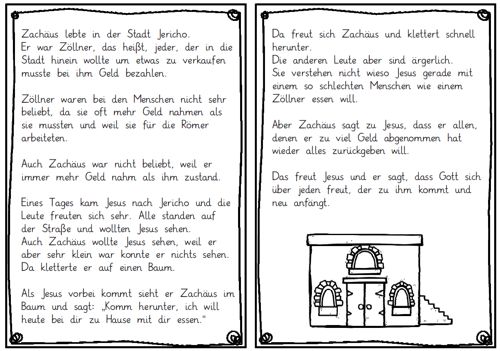 Zachäus lebte in der Stadt Jericho.
Er war Zöllner, das heißt, jeder, der in die
Stadt hinein wollte um etwas zu verkaufen
musste bei ihm Geld bezahlen.
Zöllner waren bei den Menschen nicht sehr
beliebt, da sie oft mehr Geld nahmen als
sie mussten und weil sie für die Römer
arbeiteten.
Auch Zachäus war nicht beliebt, weil er
immer mehr Geld nahm als ihm zustand.
Eines Tages kam Jesus nach Jericho und die
Leute freuten sich sehr. Alle standen auf
der Straße und wollten Jesus sehen.
Auch Zachäus wollte Jesus sehen, weil er
aber sehr klein war konnte er nichts sehen.
Da kletterte er auf einen Baum.
Als Jesus vorbei kommt sieht er Zachäus im
Baum und sagt: „Komm herunter, ich will
heute bei dir zu Hause mit dir essen.“
Da freut sich Zachäus und klettert schnell
herunter.
Die anderen Leute aber sind ärgerlich.
Sie verstehen nicht wieso Jesus gerade mit
einem so schlechten Menschen wie einem
Zöllner essen will.
Aber Zachäus sagt zu Jesus, dass er allen,
denen er zu viel Geld abgenommen hat
wieder alles zurückgeben will.
Das freut Jesus und er sagt, dass Gott sich
über jeden freut, der zu ihm kommt und
neu anfängt.